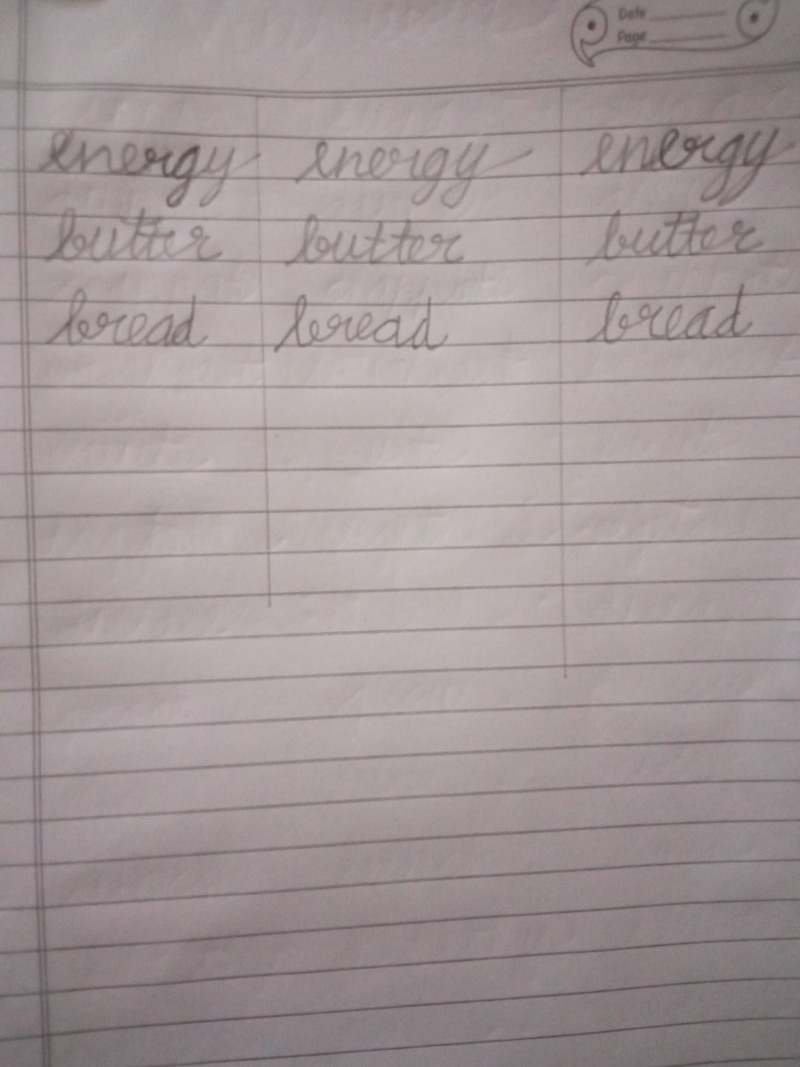 Date
Page
energy energy energy
butter butter butter
bread bread bread